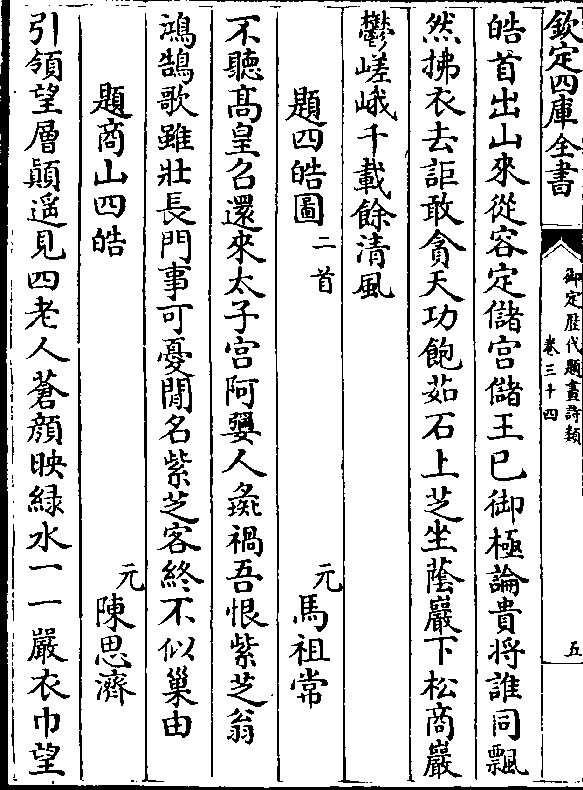 欽定四庫全書
御定歴代題畫詩類
卷三十四
五
皓首出山來從容定儲宫儲王已御極論貴将誰同飄
然拂衣去詎敢貪天功飽茹石上芝坐蔭巖下松商巖
鬱嵯峨千載餘清風
題四皓圖二首 元馬祖常
不聽髙皇召還來太子宫阿嬰人彘禍吾恨紫芝翁
鴻鵠歌雖壯長門事可憂閒名紫芝客終不似巢由
題商山四皓 元陳思濟
引領望層顛遥見四老人蒼顔映緑水一一嚴衣巾望